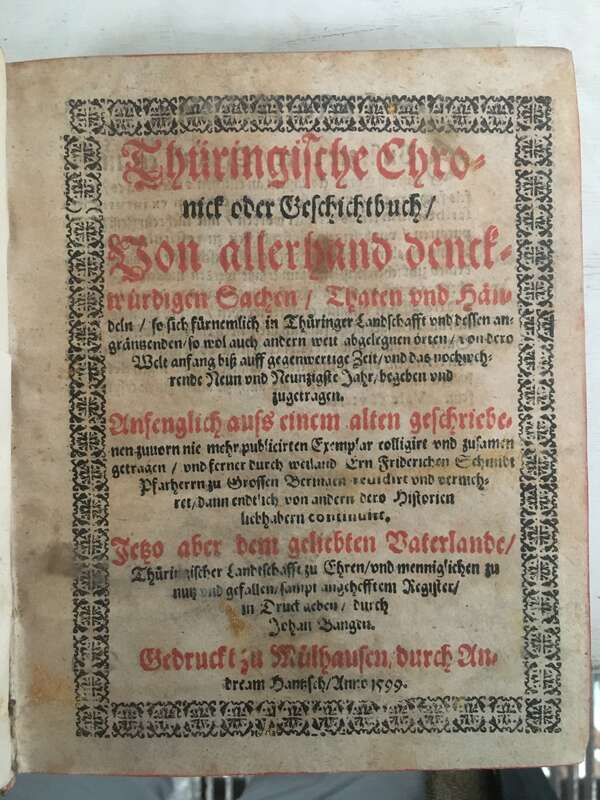 Thüringische Chro-
nick oder Geschichtbuch/
Von allerhand denck-
würdigen Sachen/ Thaten vnd Hän-
deln/ so sich fürnemlich in Thüringer Landschafft vnd dessen an-
gräntzenden/ so wol auch andern weit abgelegnen örten/ von dero
Welt anfang biß auff gegenwertige Zeit/ vnd das nochweh-
rende Neun vnd Neunzigste Jahr/ begeben vnd
zugetragen.
Anfenglich auß einem alten geschriebe-
nen zuuorn nie mehr publicirten Exemplar colligirt vnd zusamen
getragen/ vnd ferner durch weiland Ern Friderichen Schmidt
Pfarherrn zu Grossen Bermgen reuidirt vnd vermeh-
ret/ dann endtlich von andern dero Historien
liebhabern continuirt.
Jetzo aber dem geliebten Vaterlande/
Thüringischer Landtschafft zu Ehren/ vnd menniglichen zu
nutz vnd gefallen/ sampt angehefftem Register/
in Druck geben/ durch
Johan Bangen.
Gedruckt zu Mülhausen/ durch An-
dream Hantzsch/ Anno 1599.